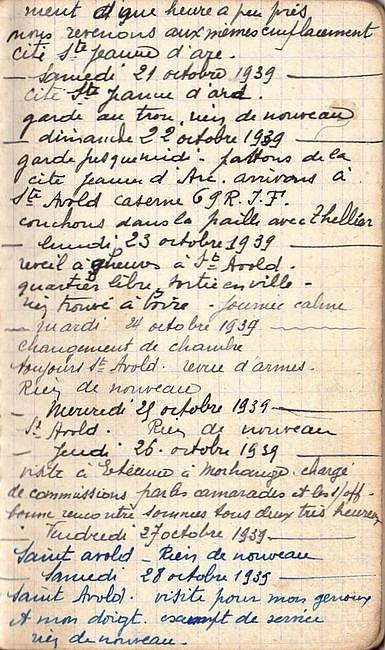 ment à que heure a peu près
nous revenons aux mêmes emplacement
cité Ste Jeanne d'arc.
— Samedi 21 octobre 1939 —
Cité Ste Jeanne d'arc.
garde au trou, rien de nouveau
— dimanche 22 octobre 1939 —
garde jusque midi - partons de la
cité Jeanne d'Arc. arrivons à
St Avold caserne 69 R.I.F.
couchons dans la paille avec Thellier
— lundi 23 octobre 1939 —
reveil à heures à St Avold.
quartier libre. sortie en ville -
rien trouvé à boire - Journée calme
— mardi 24 octobre 1939 —
changement de chambre
toujours St Avold. revue d'armes.
Rien de nouveau
— Mercredi 25 octobre 1939 —
St Avold. Rien de nouveau
— Jeudi 26 octobre 1939 —
visite à Etienne à Morhange. chargé
de commissions par les camarades et les s/off -
bonne rencontre sommes tous deux très heureux
- Vendredi 27 octobre 1939 -
Saint avold - Rien de nouveau
— Samedi 28 octobre 1939 —
Saint Avold. visite pour mon genoux
et mon doigt. exempt de service
rien de nouveau.